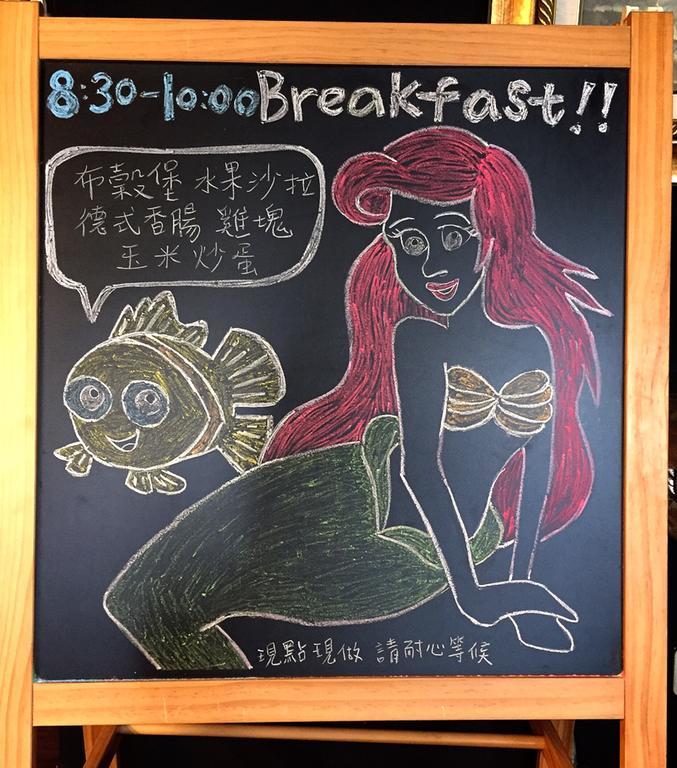 8:30-10:00 Breakfast!!
布穀堡 水果沙拉
德式香腸 雞塊
玉米炒蛋
現點現做 請耐心等候